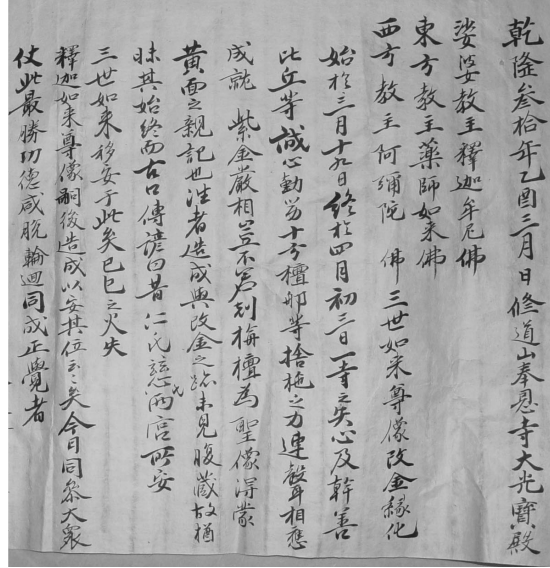 乾隆叁拾年乙酉三月日修道山奉恩寺大光寶殿
娑婆教主釋迦牟尼佛
東方教主藥師如來佛
西方教主阿彌陀佛 三世如來尊像改金緣化
始於三月十九日終於四月初三日一寺之失心及幹善
比丘等誠心勸勞十方檀那等捨施之力連聲相應
成就 紫金嚴相豈不爲刻栴檀爲聖像得蒙
黃面之親記也 造者造成與改金之跡未見腹藏故猶
昧其始終而古口傳諺曰昔仁氏慈氏兩宮所安
三世如來移安于此矣己巳之火失
釋迦如來尊像嗣後造成以安其位云云矣今日同參大衆
仗此最勝功德咸脫輪迴同成正覺者